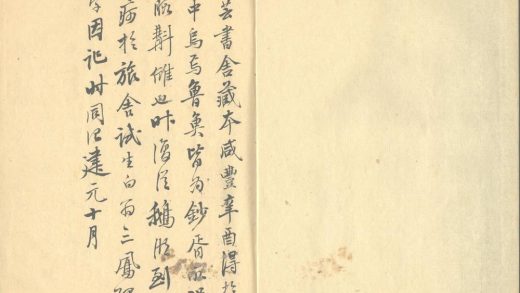 芸書舍藏本咸豐辛酉得於
中烏焉魯魚皆為鈔胥所
斠讎也昨復從鵝湖到
病於旅舍試生白 三鳳
因記時同治建元十月